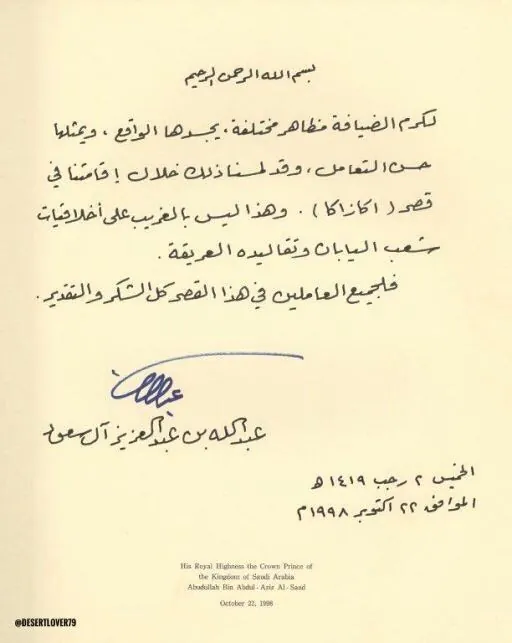 بسم الله الرحمن الرحيم
لكرم الضيافة مظاهر مختلفة، يجسدها الواقع، ويمثلها
حسن التعامل، وقد لمسنا ذلك خلال إقامتنا في
قصر (اكازاكا). وهذا ليس بالغريب على أخلاقيات
شعب اليابان وتقاليده العريقة.
فلجميع العاملين في هذا القصر كل الشكر والتقدير.
عبدالله بن عبدالعزيز آل سعود
الخميس ٢ رجب ١٤١٩هـ
الموافق ٢٢ اكتوبر ١٩٩٨م
His Royal Highness the Crown Prince of
the Kingdom of Saudi Arabia
Abudullah Bin Abdul-Aziz Al-Saud
October 22, 1998
@DESERTLOVER79